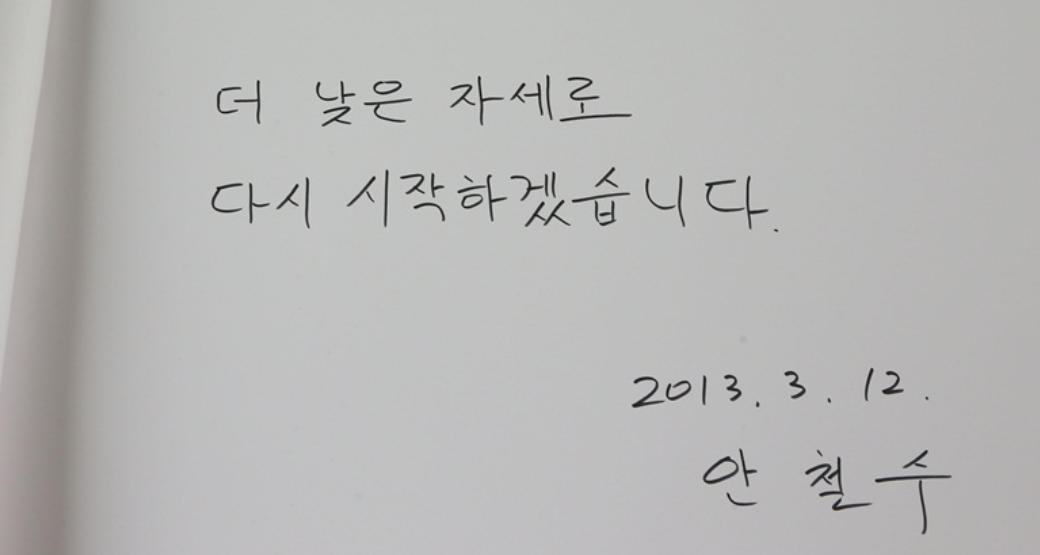 더 낮은 자세로
다시 시작하겠습니다.
2013. 3. 12.
안 철 수